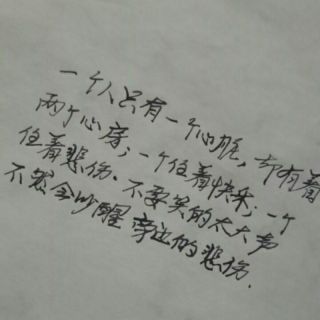 一个人只有一个心脏，却有着
两个心房；一个住着快乐；一个
住着悲伤．不要笑的太大声
不然会吵醒旁边的悲伤．